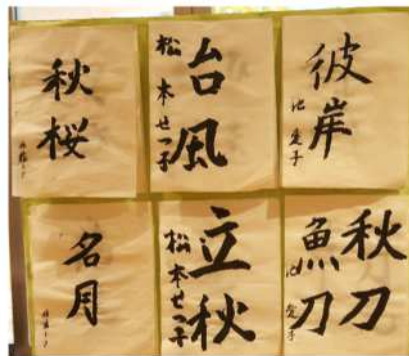 彼岸
池 愛子
台風
松本せつ子
秋桜
秋刀
魚刀
池 愛子
立秋
松本せつ子
名月